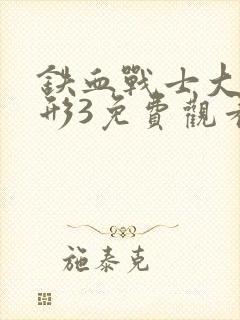 鉄血戰士大
形3免費觀看
施泰克